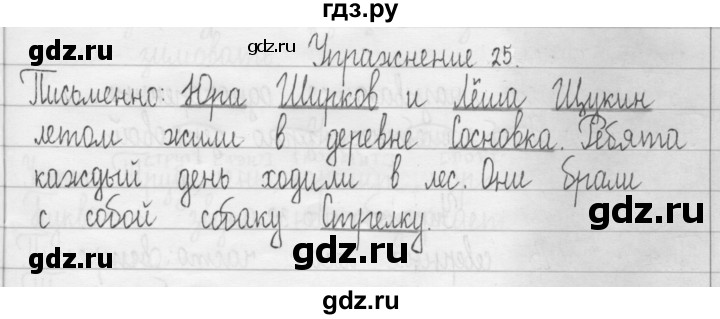 гдз.ру
gdz.ru gdz.ru
Упражнение 25.
Письменно: Юра Ширков и Лёша Щукин
летом жили в деревне Сосновка. Ребята
каждый день ходили в лес. Они брали
с собой собаку Стрелку.
gdz.ru
gdz.ru
gdz.ru
gdz.ru